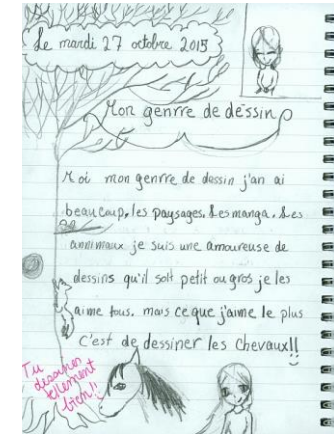 Le mardi 27 octobre 2015
Mon genrre de dessin
Moi mon genrre de dessin j'an ai
beaucoup, les paysages. Les manga. Les
annimaux je suis une amoureuse de
dessins qu'il soit petit ou gros je les
aime tous. mais ce que j'aime le plus
C'est de dessiner les chevaux!!
Tu
dessines
tellement
bien!!